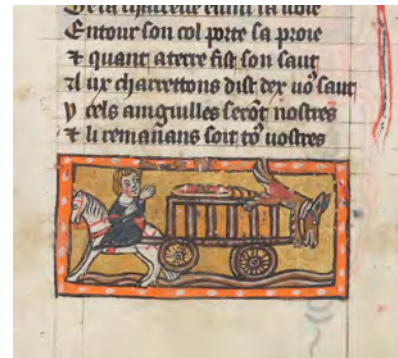 De la charrette enmi la uoie
Entour son col porte sa proie
⁊ quant aterre fist son saut
ux charrettons dist dex uoꝰ saut
cels anguilles serõt nostres
⁊ li remanans soit toꝰ uostres